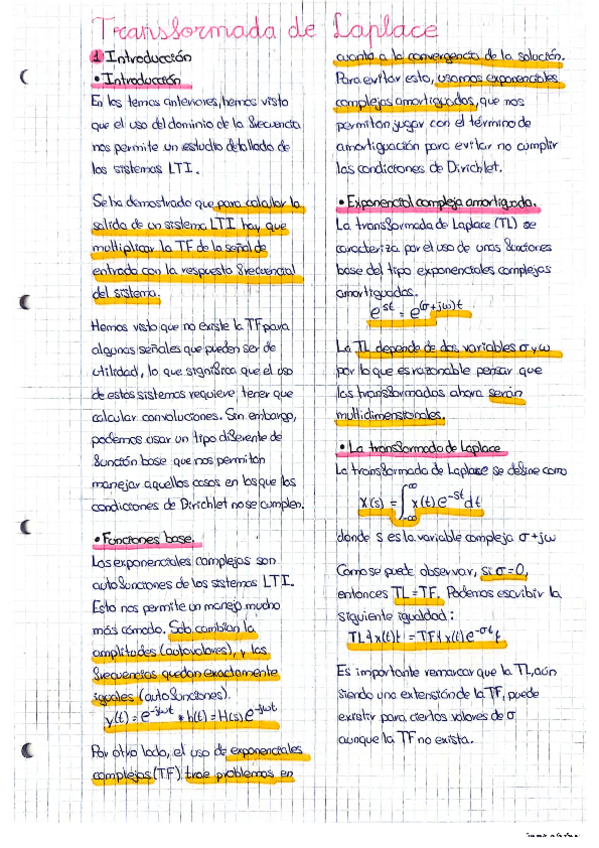 Transformada de Laplace
1 Introducción
• Introducción
En los temas anteriores, hemos visto
que el uso del dominio de la frecuencia
nos permite un estudio detallado de
los sistemas LTI.
Se ha demostrado que para calcular la
salida de un sistema LTI hay que
multiplicar la TF de la señal de
entrada con la respuesta frecuencial
del sistema.
Hemos visto que no existe la TF para
algunas señales que pueden ser de
utilidad, lo que significa que el uso
de estos sistemas requiere tener que
calcular convoluciones. Sin embargo,
podemos usar un tipo diferente de
función base que nos permitan
manejar aquellos casos en los que las
condiciones de Dirichlet no se cumplen.
• Funciones base.
Las exponenciales complejas son
autofunciones de los sistemas LTI.
Esto nos permite un manejo mucho
más cómodo. Solo cambian la
amplitudes (autovalores), y las
frecuencias quedan exactamente
iguales (autofunciones).
y(t) = e^-jωt * h(t) = H(s) e^-jωt
Por otro lado, el uso de exponenciales
complejas (TF) trae problemas en
cuanto a la convergencia de la solución.
Para evitar esto, usamos exponenciales
complejas amortiguadas, que nos
permitan jugar con el término de
amortiguación para evitar no cumplir
las condiciones de Dirichlet.
• Exponencial compleja amortiguada.
La transformada de Laplace (TL) se
caracteriza por el uso de unas funciones
base del tipo exponenciales complejas
amortiguadas.
e^st = e^(σ+jω)t
La TL depende de dos variables σ y ω
por lo que es razonable pensar que
las transformadas ahora serán
multidimensionales.
• La transformada de Laplace
La transformada de Laplace se define como
X(s) = ∫_-∞^∞ x(t) e^-st dt
donde s es la variable compleja σ+jω
Como se puede observar, si σ=0,
entonces TL = TF. Podemos escribir la
siguiente igualdad:
TL{x(t)} = TF{x(t) e^-σt}
Es importante remarcar que la TL, aún
siendo una extensión de la TF, puede
existir para ciertos valores de σ
aunque la TF no exista.